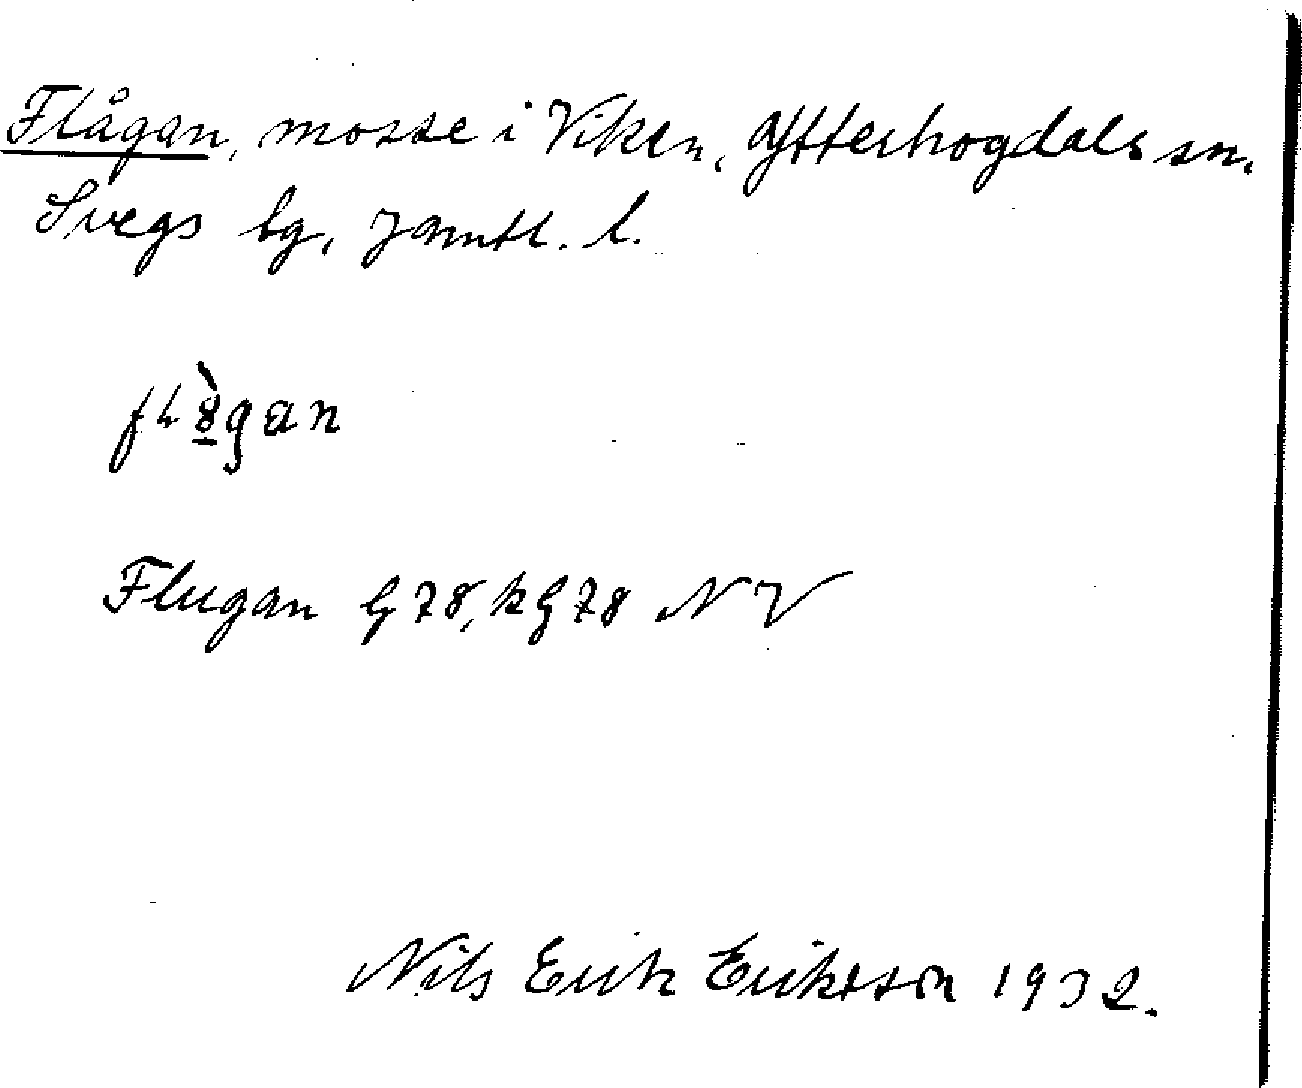 Flågan, mosse i Viken, Ytterhogdals sn.
Svegs tg, Jämtl. l.
Flugan G 78, kG 78 NV
Nils Erik Eriksson 1932.